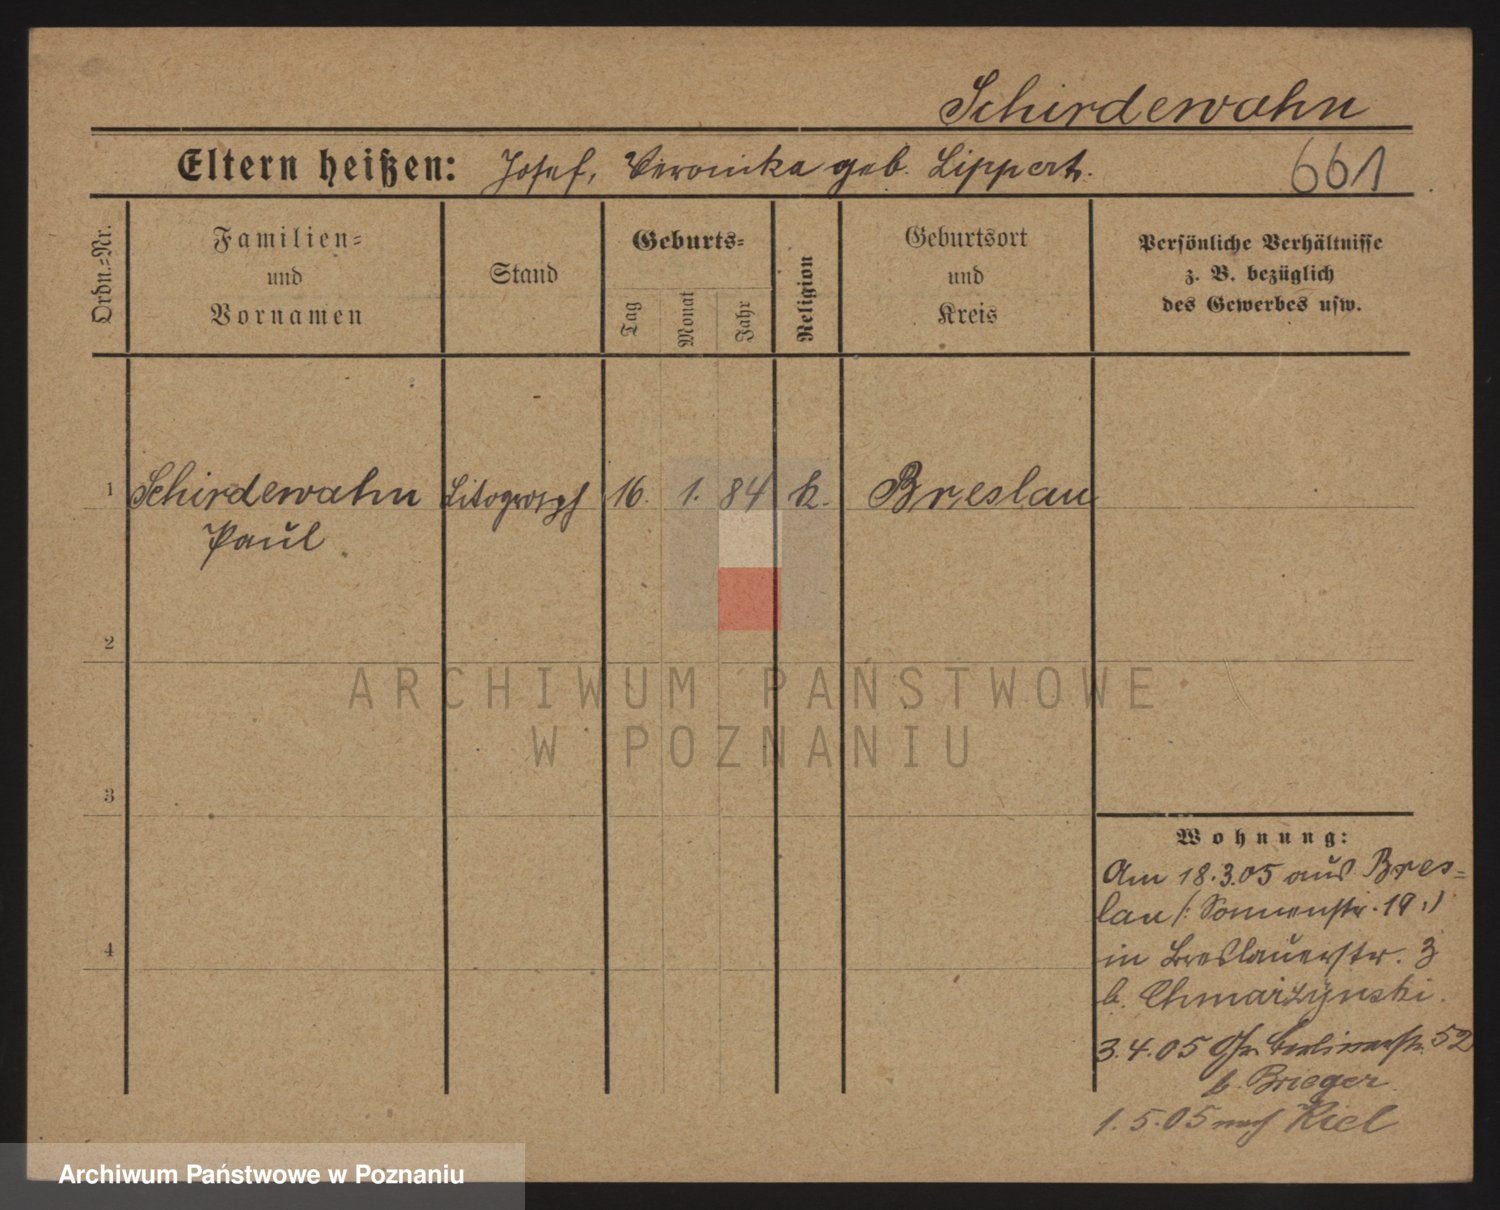 Schirdewahn
Eltern heißen: Josef, Veronika geb. Lippert.
661
Ordn.-Nr.
Familien-
und
Vornamen
Stand
Geburts-
Tag
Monat
Jahr
Religion
Geburtsort
und
Kreis
Persönliche Verhältnisse
z. B. bezüglich
des Gewerbes usw.
1 Schirdewahn Litograph 16. 1. 84 k. Breslau
Paul
2
3
4
Wohnung:
Am 18.3.05 aus Bres-
lau /: Sonnenstr. 19 :/
in Breslauerstr. 3
b. Chmarzÿnski.
3.4.05 Gr. Berlinerstr. 52
b. Brieger
1.5.05 nach Kiel
ARCHIWUM PAŃSTWOWE
W POZNANIU
Archiwum Państwowe w Poznaniu